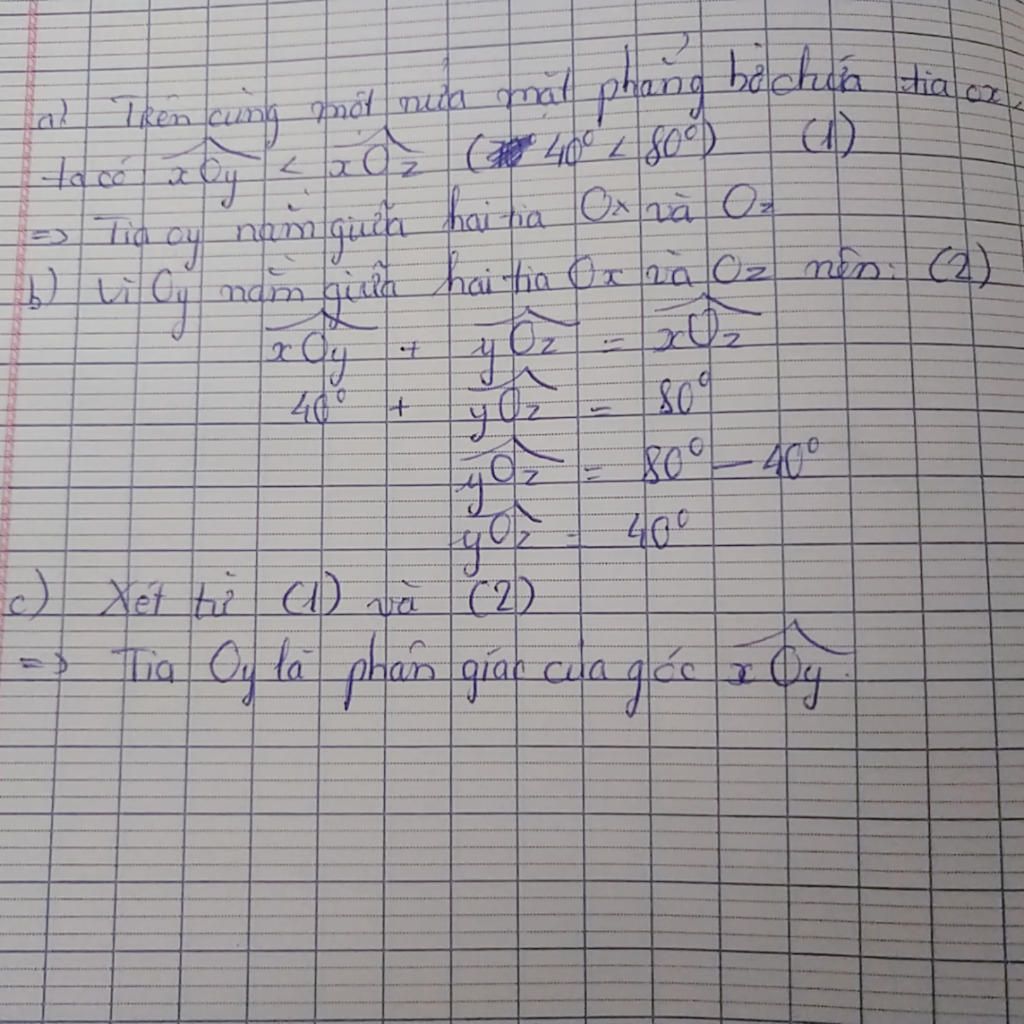 a) Trên cùng một nửa mặt phẳng bờ chứa tia ox.
ta có xOy < xOz ( 40° < 80°) (1)
=> Tia oy nằm giữa hai tia Ox và Oz
b) Vì Oy nằm giữa hai tia Ox và Oz nên: (2)
xOy + yOz = xOz
40° + yOz = 80°
yOz = 80° - 40°
yOz = 40°
c) Xét từ (1) và (2)
=> Tia Oy là phân giác của góc xOy.